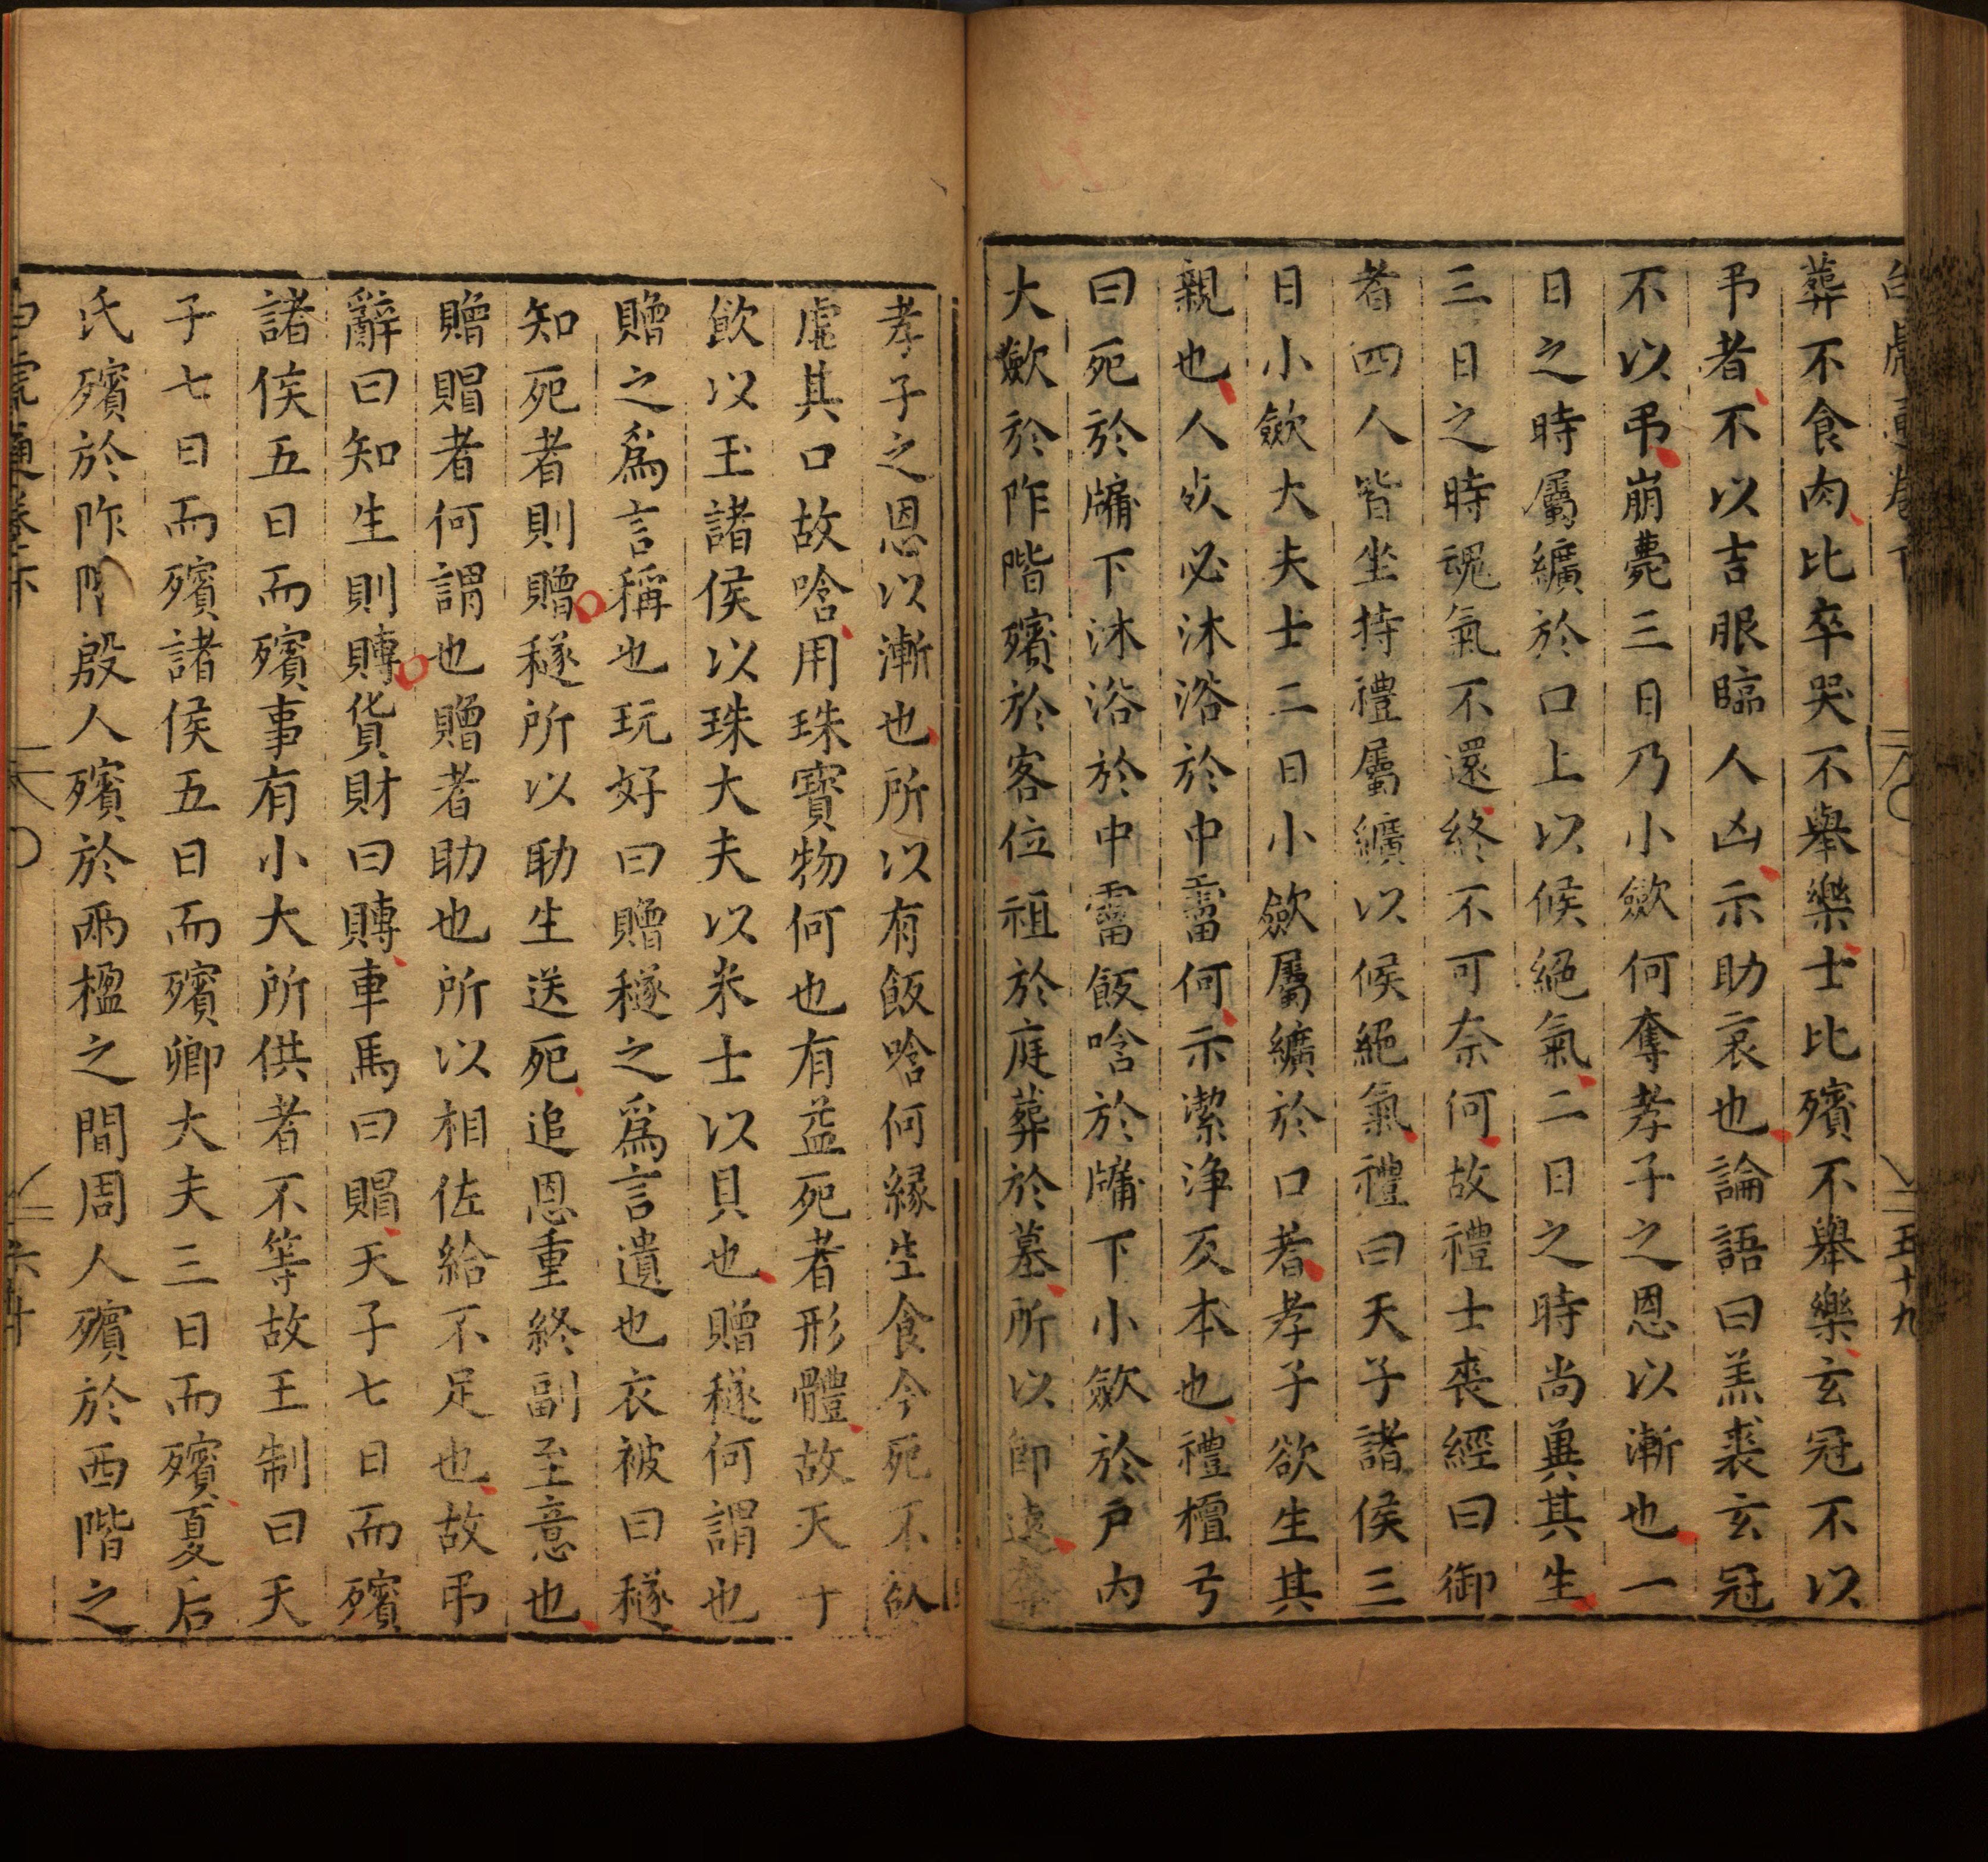 葬不食肉比卒哭不舉樂士比殯不舉樂玄冠不以
弔者不以吉服臨人凶示助哀也論語曰羔裘玄冠
不以弔崩薨三日乃小歛何奪孝子之恩以漸也一
日之時屬纊於口上以候絕氣二日之時尚冀其生
三日之時魂氣不還終不可奈何故禮士喪經曰御
者四人皆坐持禮屬纊以候絕氣禮曰天子諸侯三
日小歛大夫士二日小歛屬纊於口者孝子欲生其
親也人死必沐浴於中霤何示潔淨反本也禮檀弓
曰死於牖下沐浴於中霤飯唅於牖下小歛於戶內
大歛於阼階殯於客位祖於庭葬於墓所以即遠
孝子之恩以漸也所以有飯唅何緣生食今死不欲
虛其口故唅用珠寶物何也有益死者形體故天子
飯以玉諸侯以珠大夫以米士以貝也贈襚何謂也
贈之為言稱也玩好曰贈襚之為言遺也衣被曰襚
知死者則贈襚所以助生送死追恩重終副至意也
贈賵者何謂也贈者助也所以相佐給不足也故弔
辭曰知生則賻貨財曰賻車馬曰賵天子七日而殯
諸侯五日而殯事有小大所供者不等故王制曰天
子七日而殯諸侯五日而殯卿大夫三日而殯夏后
氏殯於阼階殷人殯於兩楹之間周人殯於西階之
五十九
六十